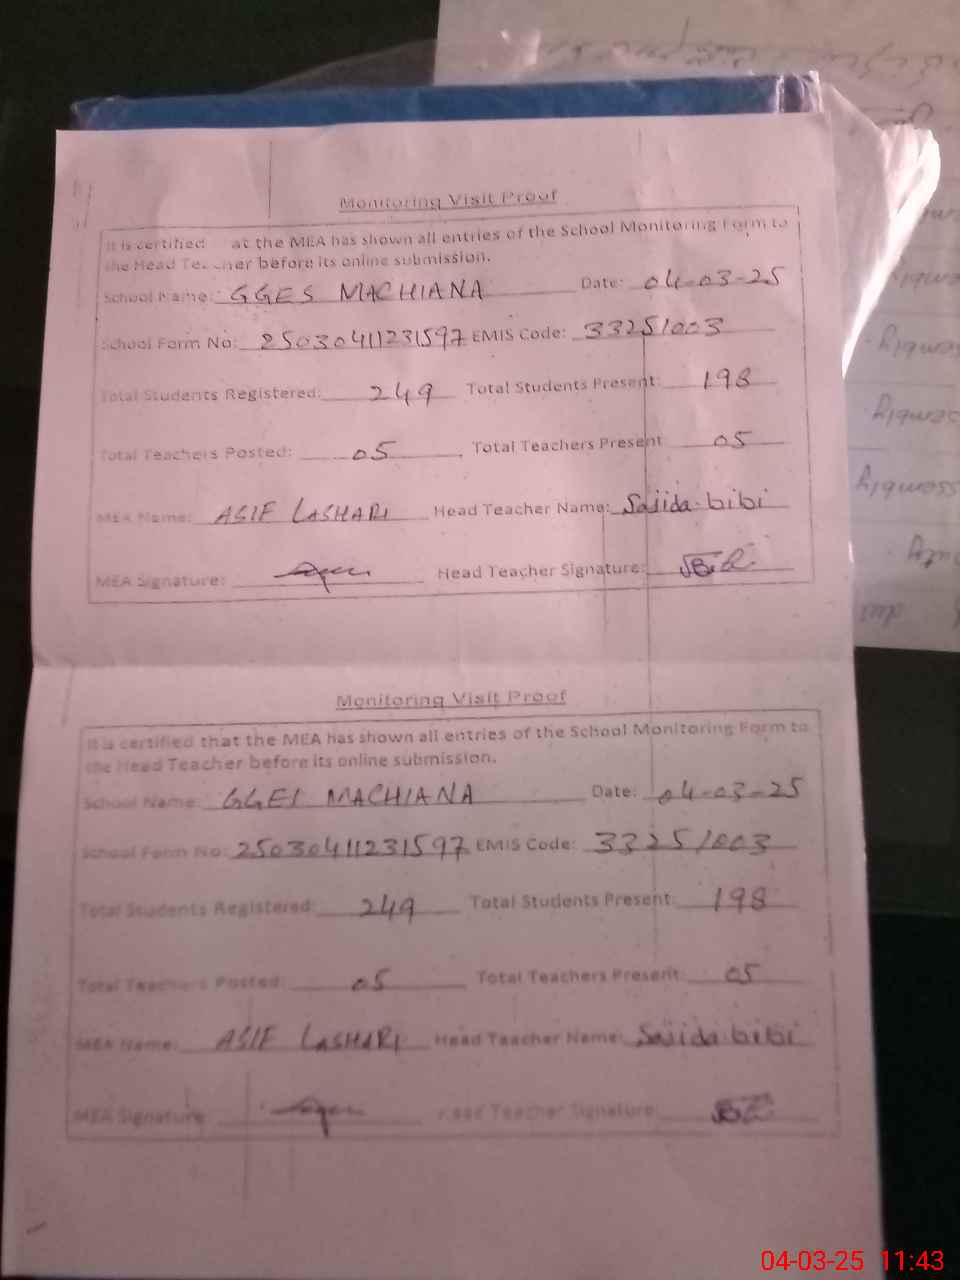 Monitoring Visit Proof
It is certified at the MEA has shown all entries of the School Monitoring Form to
the Head Teacher before its online submission.
School Name: GGES MACHIANA Date: 04-03-25
School Form No: 25030411231597 EMIS Code: 33251003
Total Students Registered: 249 Total Students Present: 198
Total Teachers Posted: 05 Total Teachers Present: 05
MEA Name: ASIF LASHARI Head Teacher Name: Sajida bibi
MEA Signature: Head Teacher Signature:
Monitoring Visit Proof
It is certified that the MEA has shown all entries of the School Monitoring Form to
the Head Teacher before its online submission.
School Name: GGES MACHIANA Date: 04-03-25
School Form No: 25030411231597 EMIS Code: 33251003
Total Students Registered: 249 Total Students Present: 198
Total Teachers Posted: 05 Total Teachers Present: 05
MEA Name: ASIF LASHARI Head Teacher Name: Sajida bibi
MEA Signature Head Teacher Signature:
04-03-25 11:43